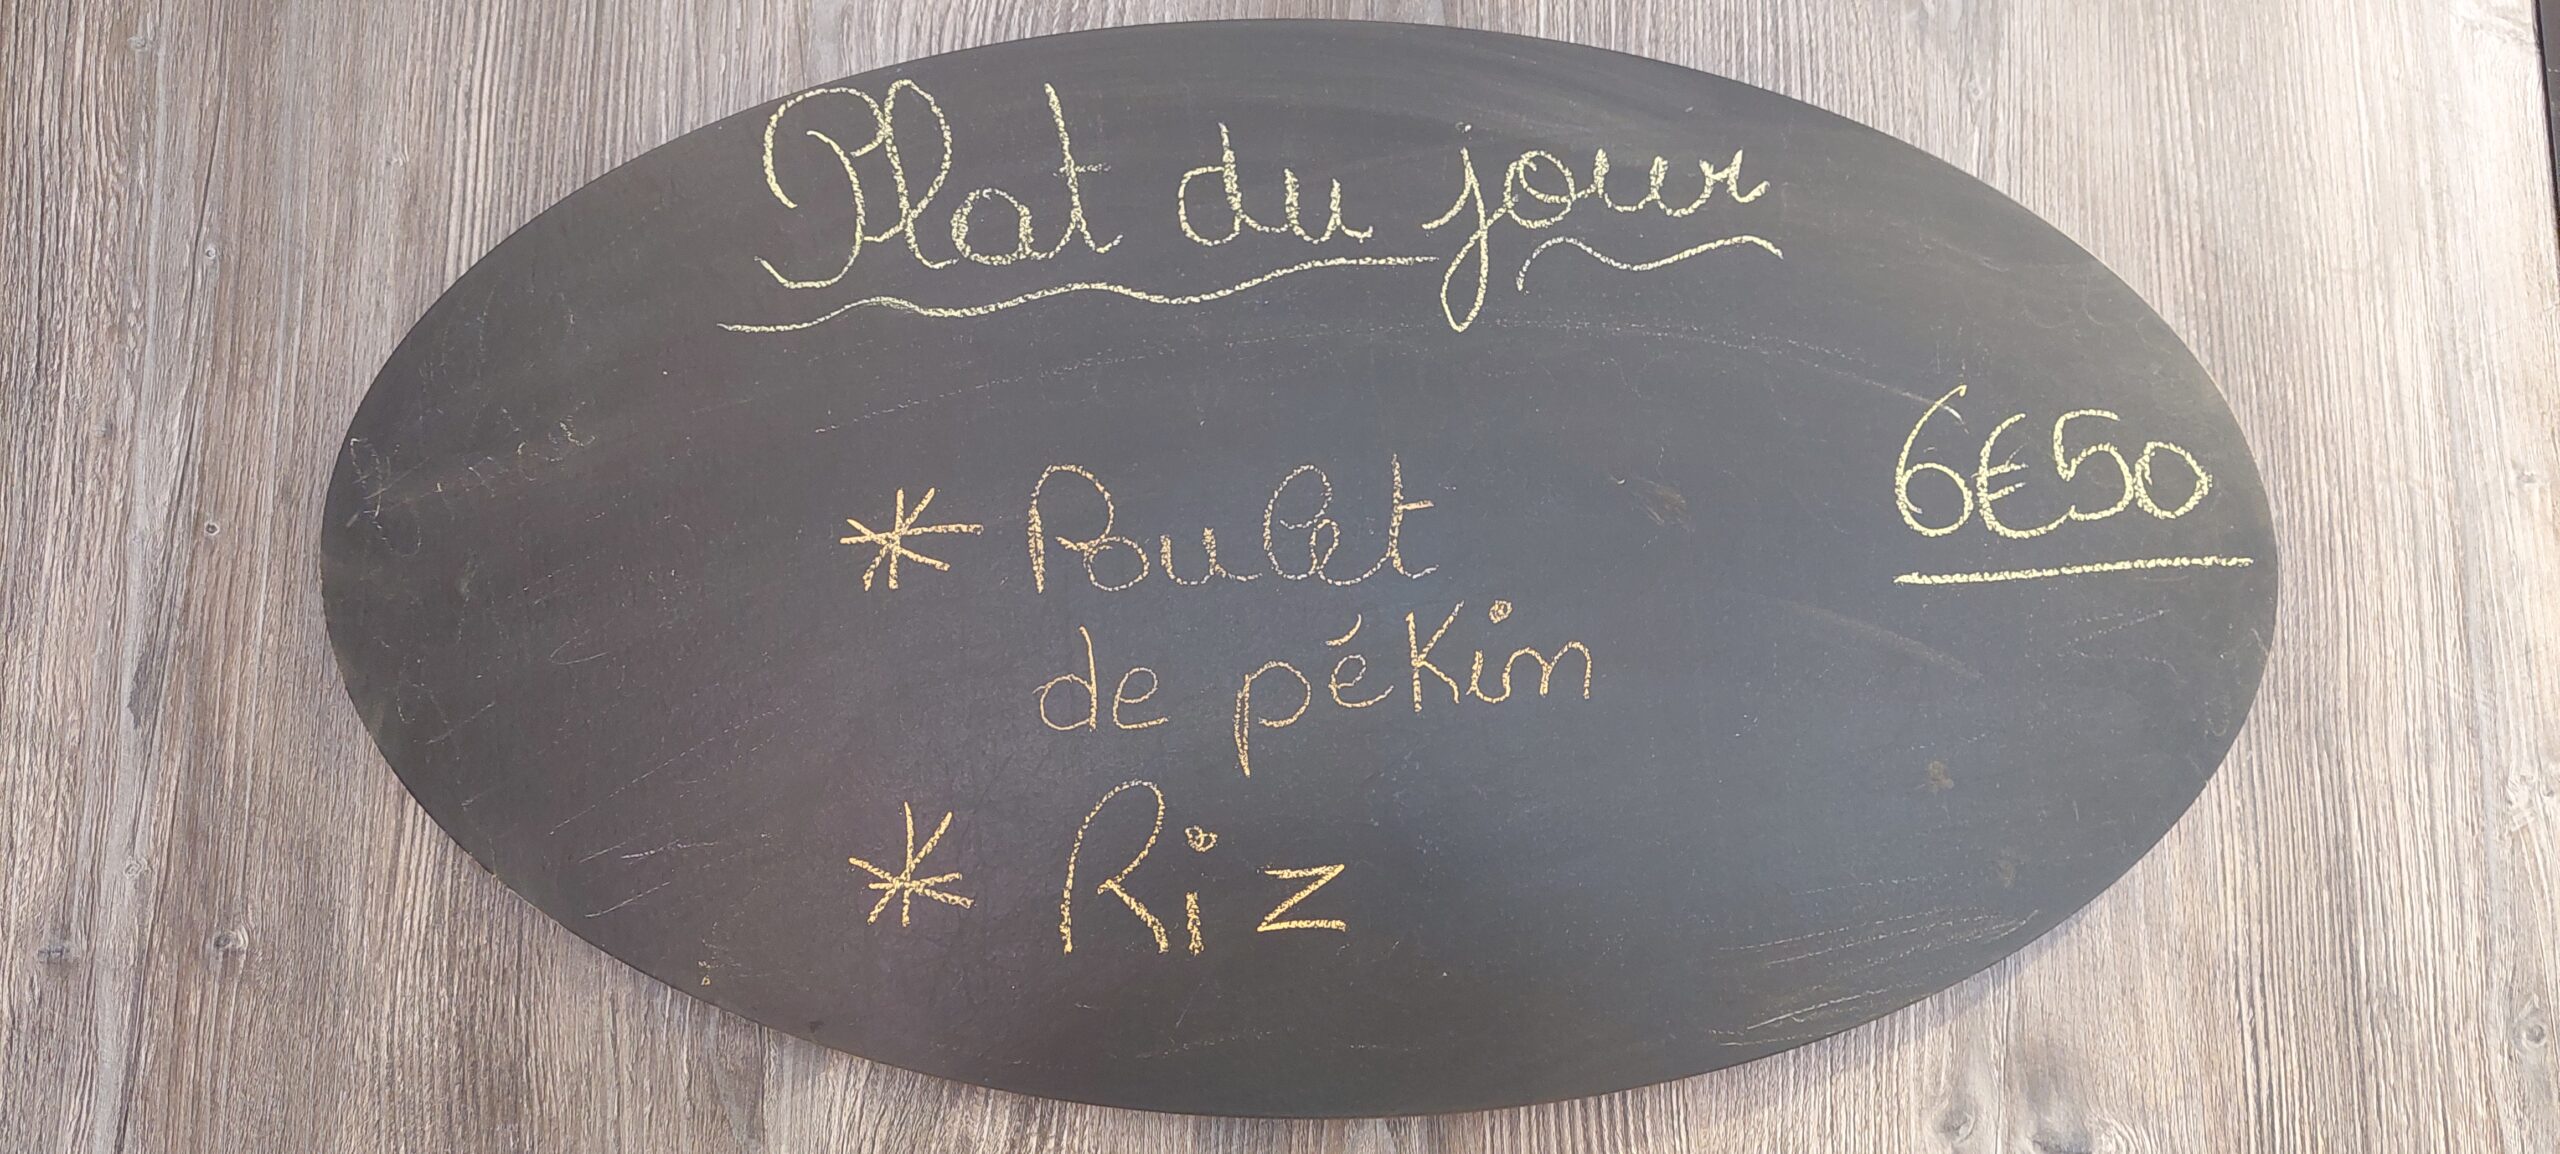 Plat du jour
6€50
* Poulet
de pékin
* Riz